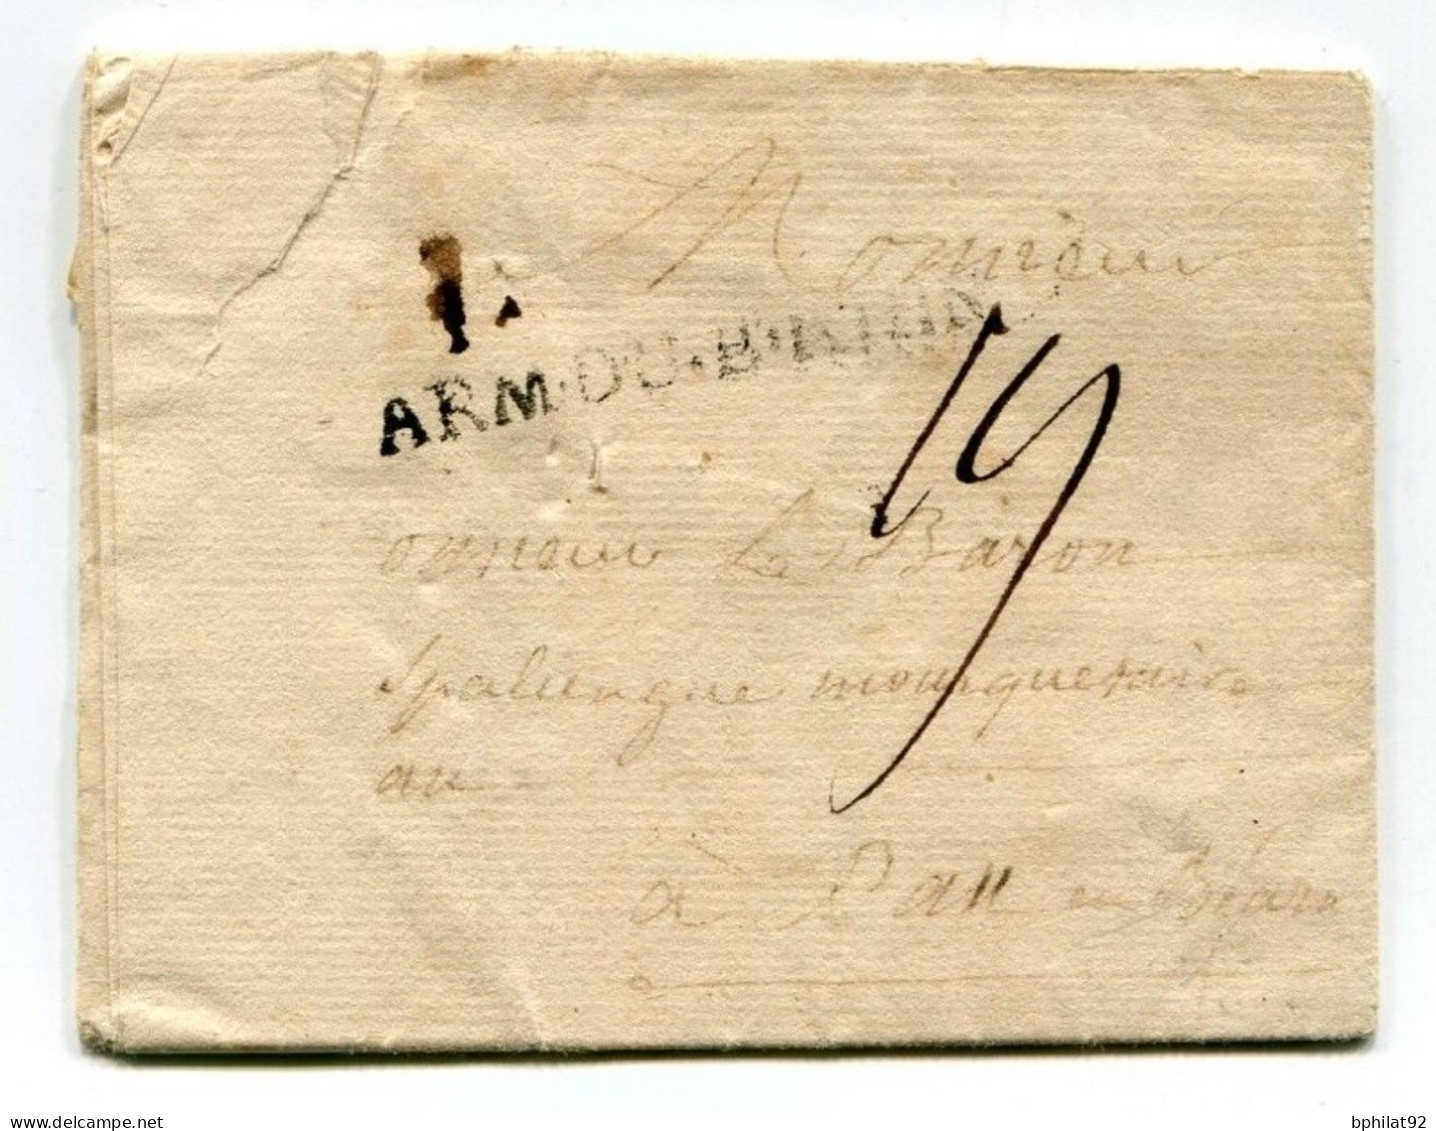 Monsieur
ARM. DU. B. RHIN
19
onsieur Le Baron
Spalungue mousqueraire
au
à Pau en Béarn
delcampe.net
bphilat92